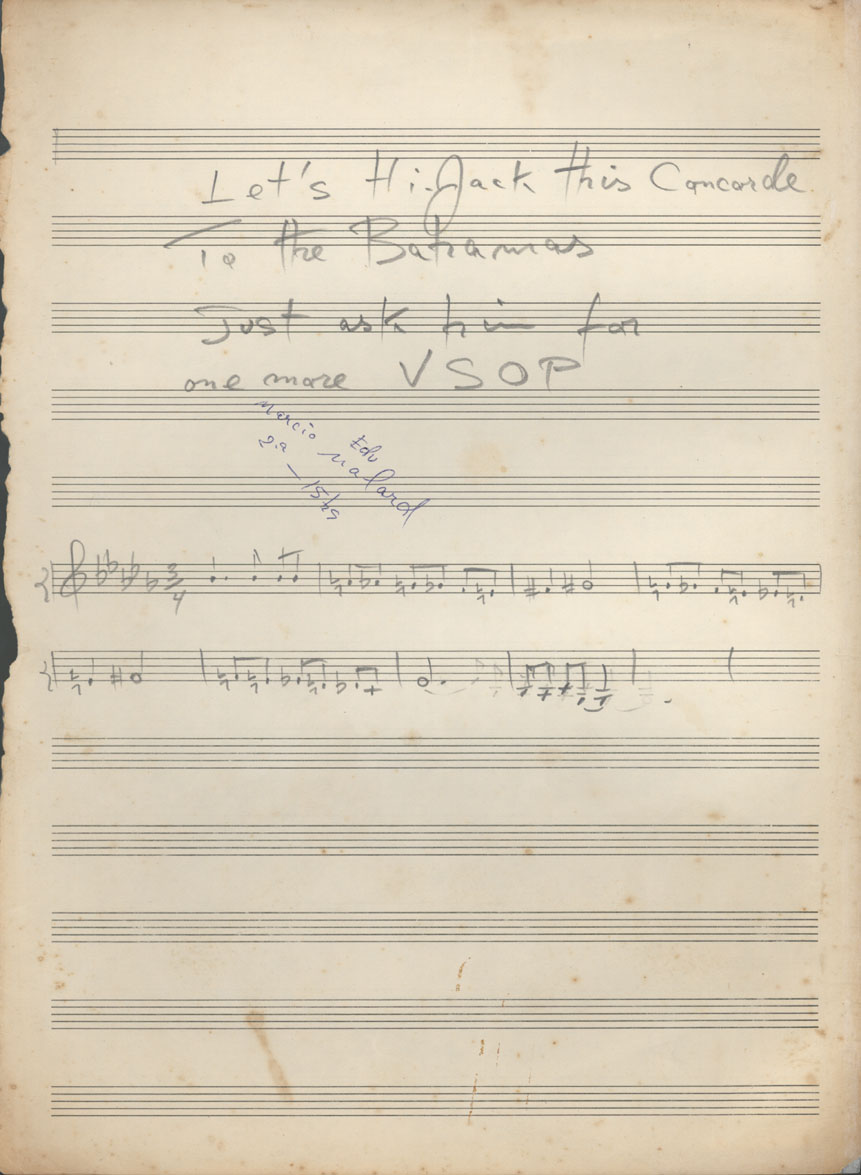 Let's Hi-Jack this Concorde
To the Bahamas
Just ask him for
one more VSOP
Marcio Edu Malard
2a – 15hs
3
4